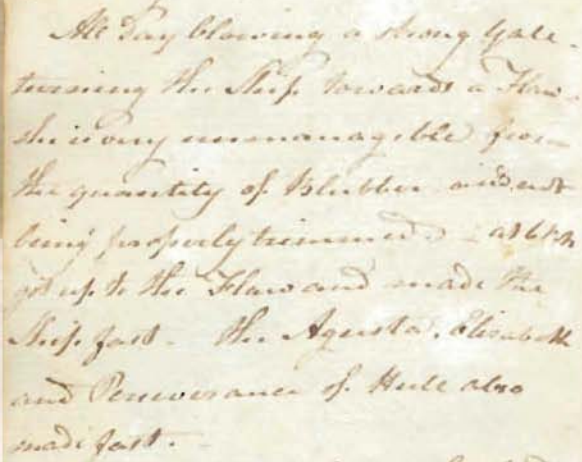 All Day blowing a strong Gale -
turning the Ship towards a Flaw -
she is very unmanagible from
the quantity of Blubber and not
being properly trimmed - at 6 P.M
got up to the Flaw and made the
Ship fast - the Agusta, Elisabeth
and Perseverance of Hull also
made fast -